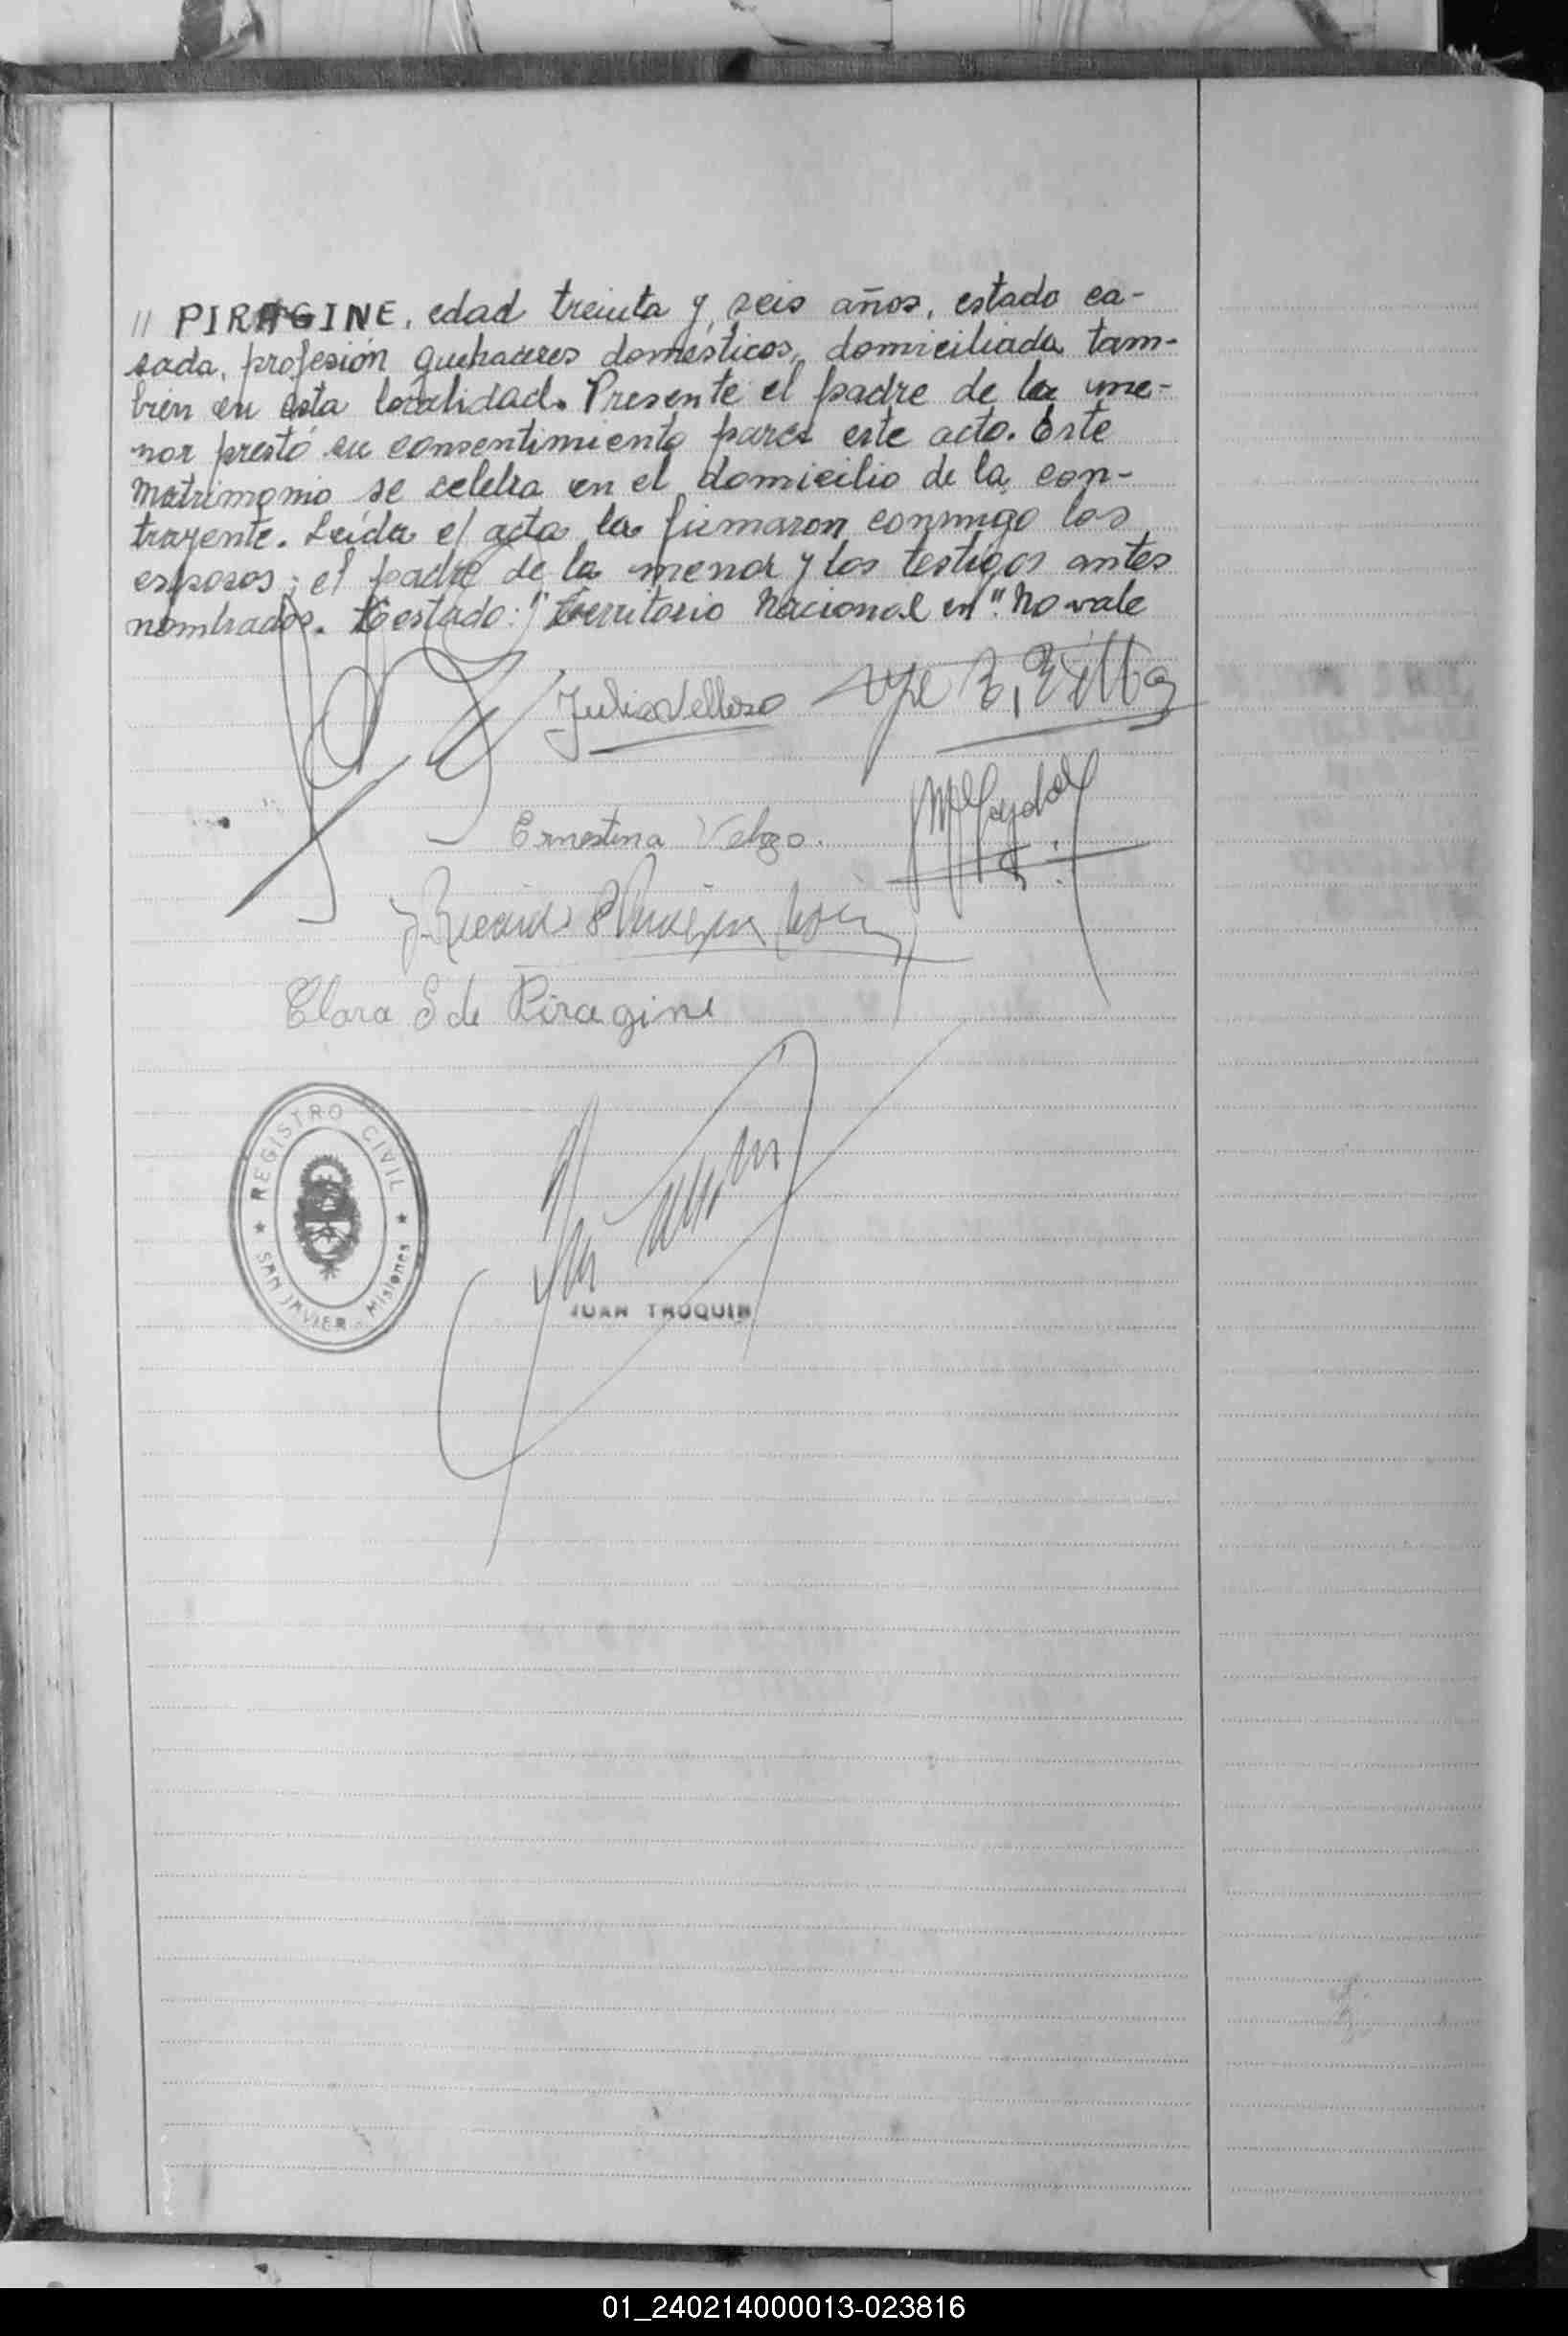 // PIRAGINE, edad treinta y seis años, estado ca-
sada, profesión quehaceres domésticos, domiciliada tam-
bien en esta localidad. Presente el padre de la me-
nor prestó su consentimiento para este acto. Este
matrimonio se celebra en el domicilio de la con-
trayente. Leída el acta la firmaron conmigo los
esposos; el padre de la menor y los testigos antes
nombrados. Testado: "Territorio Nacional en". No vale
Julio Velloso
Ernestina Velozo.
Clara S de Piragine
REGISTRO CIVIL
SAN JAVIER - Misiones
JUAN TROQUIN
01_240214000013-023816